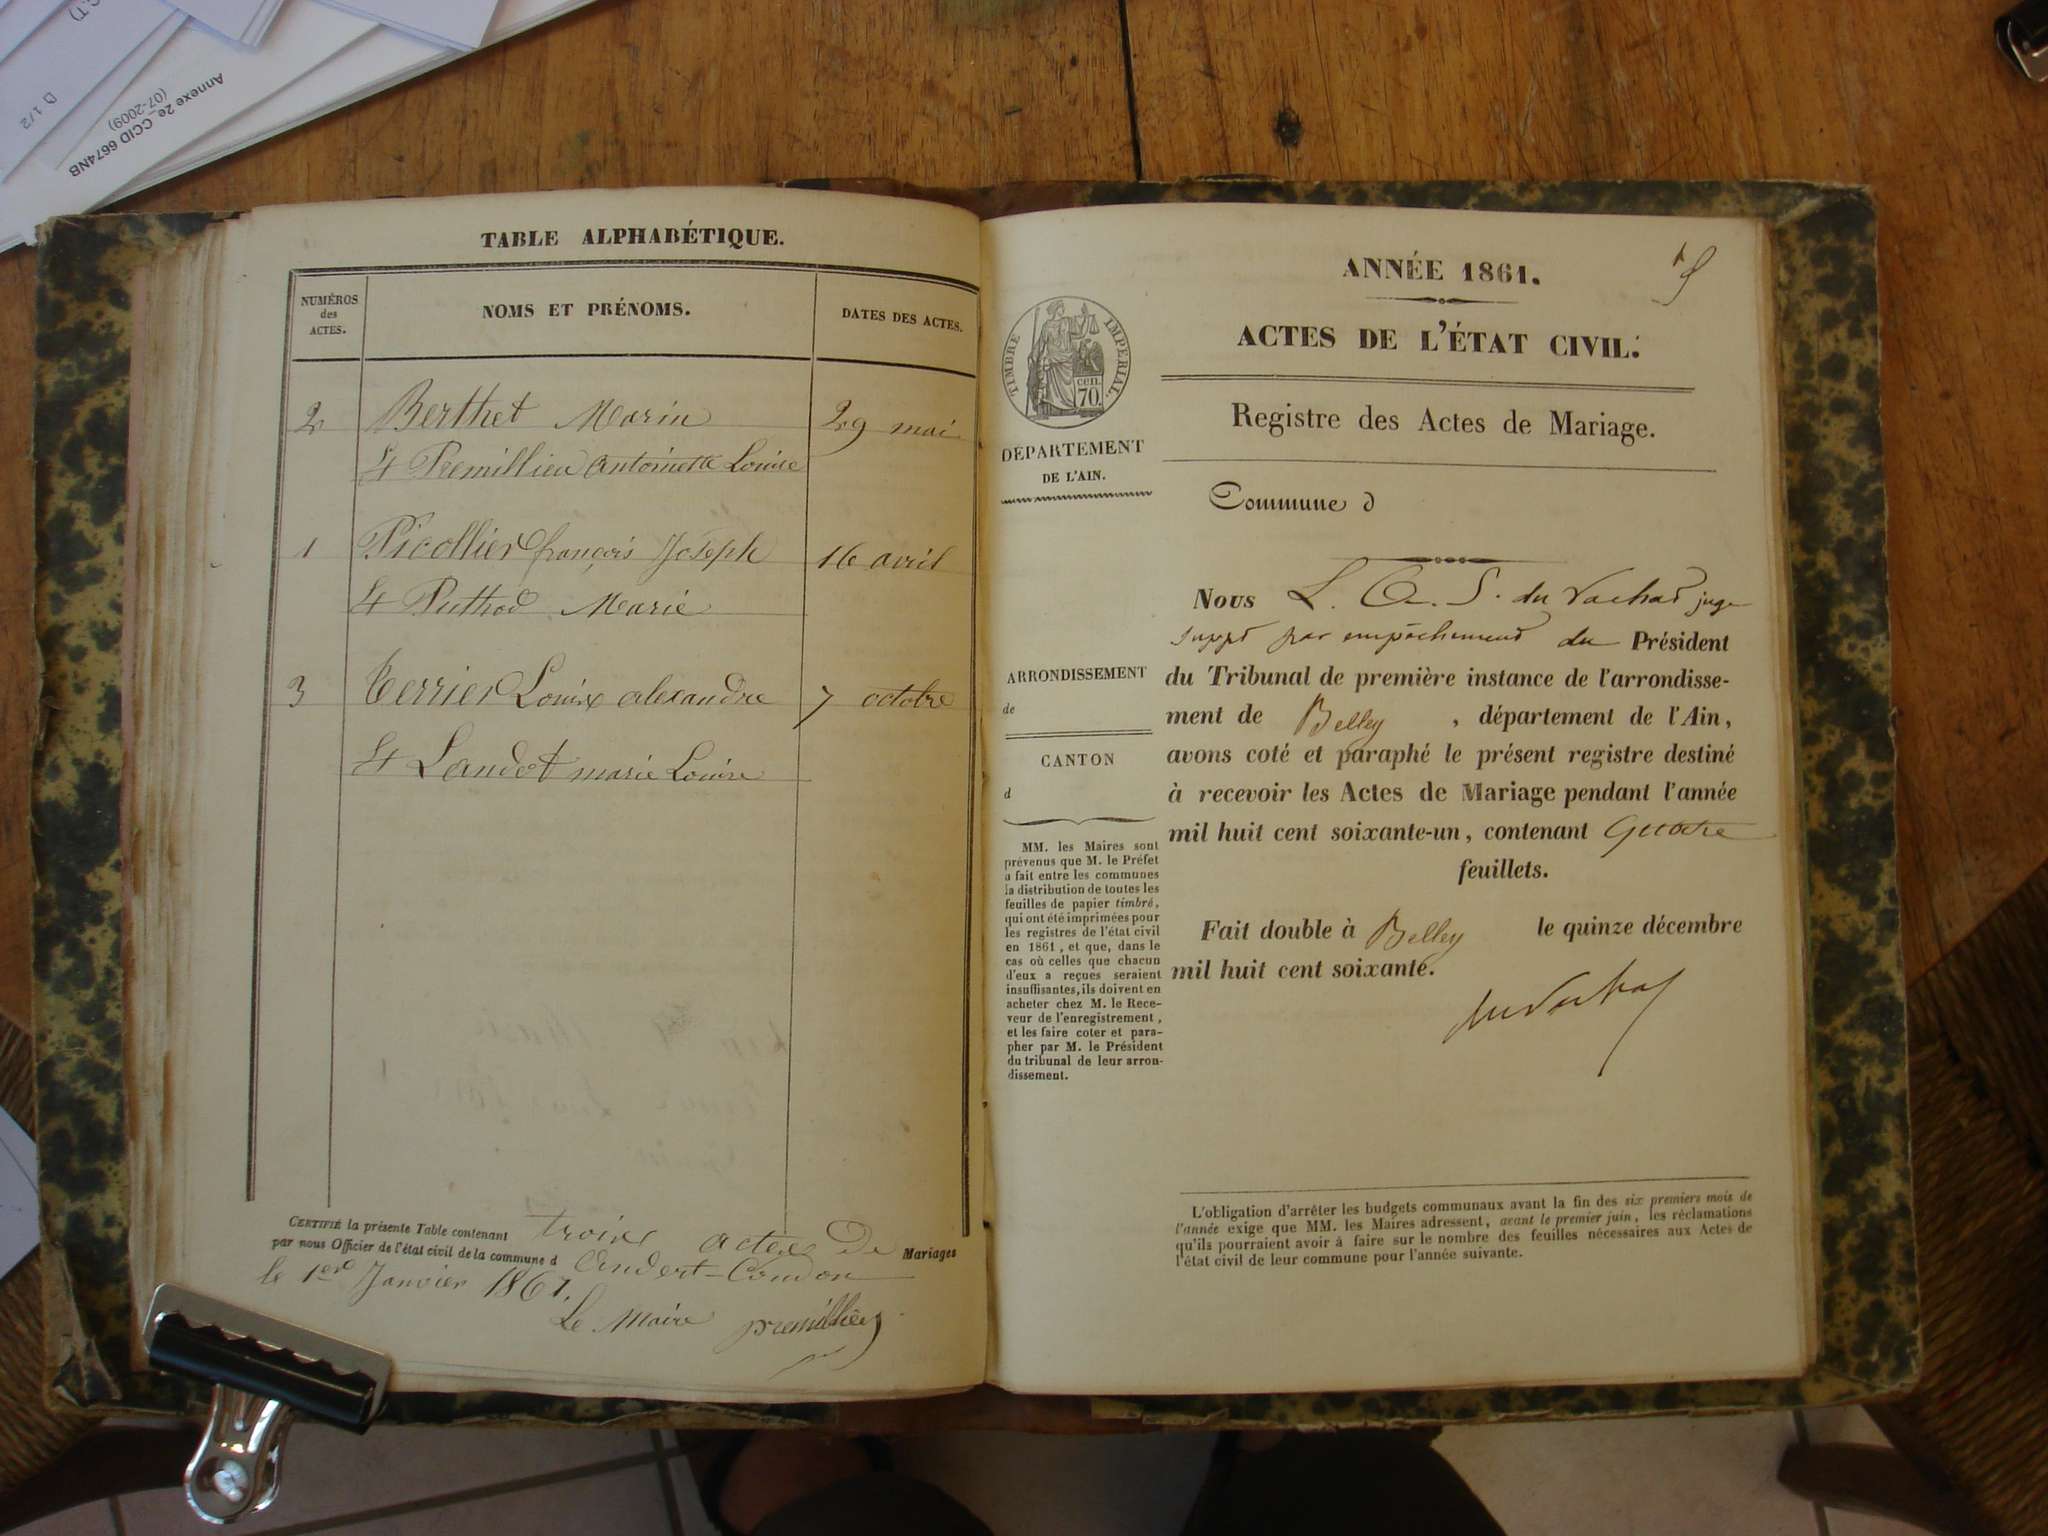 D 1/2
Annexe 2e_CCID 6674NB
(07-2009)
TABLE ALPHABÉTIQUE.
NUMÉROS
des
ACTES.
NOMS ET PRÉNOMS.
DATES DES ACTES.
2 Berthet Marin 29 mai
et Premillieu Antoinette Louise
1 Picollier françois Joseph 16 avril
et Puthod Marie
3 Terrier Louis alexandre 7 octobre
et Landot marie Louise
CERTIFIÉ la présente Table contenant trois actes De Mariages
par nous Officier de l'état civil de la commune d Andert-Condon
le 1er Janvier 1861.
Le Maire premillieu
ANNÉE 1861.
ACTES DE L'ÉTAT CIVIL.
TIMBRE IMPERIAL.
cen.
70.
Registre des Actes de Mariage.
DÉPARTEMENT
DE L'AIN.
Commune d
Nous L. du Vachat juge
suppt par empêchement du Président
du Tribunal de première instance de l'arrondisse-
ment de Belley, département de l'Ain,
avons coté et paraphé le présent registre destiné
à recevoir les Actes de Mariage pendant l'année
mil huit cent soixante-un, contenant Quatre
feuillets.
Fait double à Belley le quinze décembre
mil huit cent soixante.
du Vachat
ARRONDISSEMENT
de
CANTON
d
MM. les Maires sont
prévenus que M. le Préfet
a fait entre les communes
la distribution de toutes les
feuilles de papier timbré,
qui ont été imprimées pour
les registres de l'état civil
en 1861, et que, dans le
cas où celles que chacun
d'eux a reçues seraient
insuffisantes, ils doivent en
acheter chez M. le Rece-
veur de l'enregistrement,
et les faire coter et para-
pher par M. le Président
du tribunal de leur arron-
dissement.
L'obligation d'arrêter les budgets communaux avant la fin des six premiers mois de
l'année exige que MM. les Maires adressent, avant le premier juin, les réclamations
qu'ils pourraient avoir à faire sur le nombre des feuilles nécessaires aux Actes de
l'état civil de leur commune pour l'année suivante.